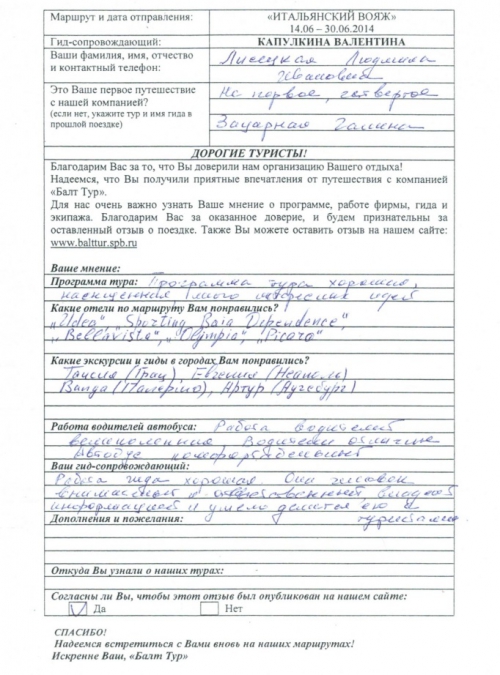 Маршрут и дата отправления: «ИТАЛЬЯНСКИЙ ВОЯЖ»
14.06 – 30.06.2014
Гид-сопровождающий: КАПУЛКИНА ВАЛЕНТИНА
Ваши фамилия, имя, отчество Лисецкая Людмила
и контактный телефон: Ивановна
Это Ваше первое путешествие Не первое, четвертое
с нашей компанией?
(если нет, укажите тур и имя гида в Захарная Галина
прошлой поездке)
ДОРОГИЕ ТУРИСТЫ!
Благодарим Вас за то, что Вы доверили нам организацию Вашего отдыха!
Надеемся, что Вы получили приятные впечатления от путешествия с компанией
«Балт Тур».
Для нас очень важно узнать Ваше мнение о программе, работе фирмы, гида и
экипажа. Благодарим Вас за оказанное доверие, и будем признательны за
оставленный отзыв о поездке. Также Вы можете оставить отзыв на нашем сайте:
www.balttur.spb.ru
Ваше мнение:
Программа тура: Программа тура хорошая,
насыщенная много интересных идей
Какие отели по маршруту Вам понравились?
„Udea", Sporting Baia Dependence",
„Bellavista", „Olympia", „Picara"
Какие экскурсии и гиды в городах Вам понравились?
Таисия (Грац), Евгения (Неаполь)
Ванда (Палермо), Артур (Аугсбург)
Работа водителей автобуса: Работа водителей
великолепная Водители отличные
Автобус комфортабельный
Ваш гид-сопровождающий:
Работа гида хорошая Она человек
внимательный и ответственный, владеет
информацией и умело делится ею с
туристами
Дополнения и пожелания:
Откуда Вы узнали о наших турах:
Согласны ли Вы, чтобы этот отзыв был опубликован на нашем сайте:
Да Нет
СПАСИБО!
Надеемся встретиться с Вами вновь на наших маршрутах!
Искренне Ваш, «Балт Тур»